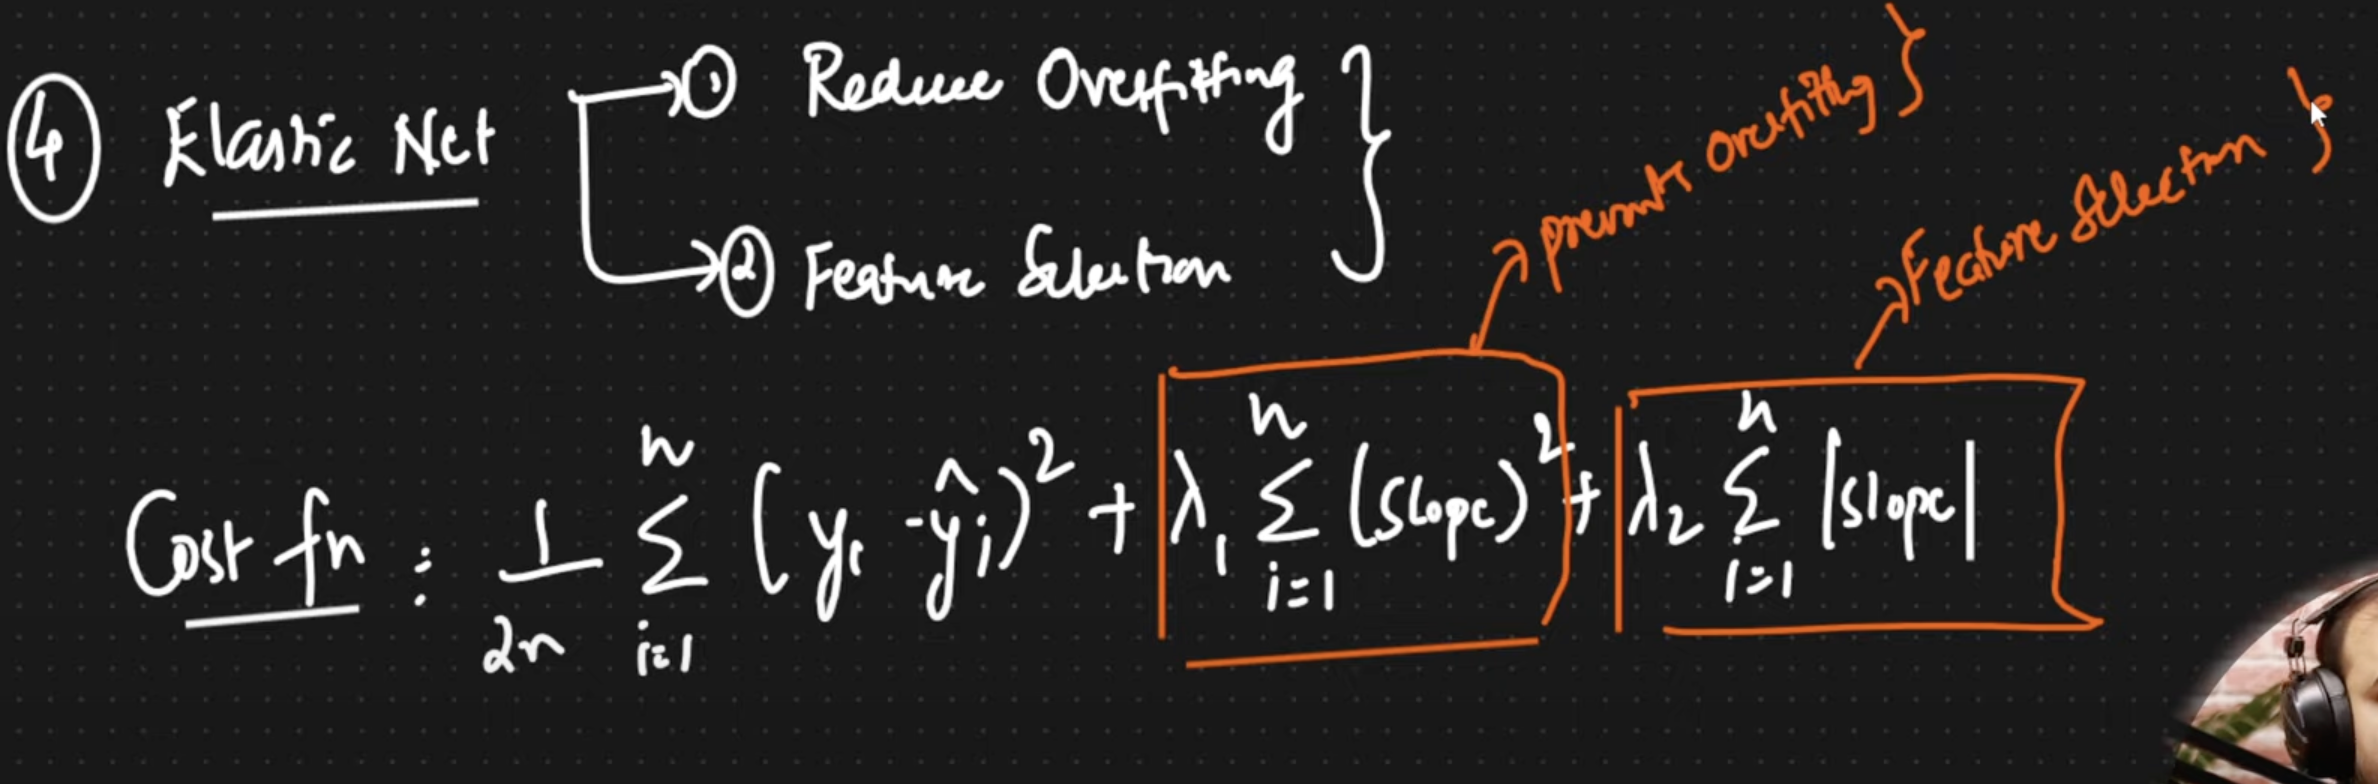 ④ Elastic Net
① Reduce Overfitting
② Feature Selection
prevents overfitting
Feature Selection
Cost fn : 1/2n Σ_{i=1}^{n} (y_i - ŷ_i)² + λ₁ Σ_{i=1}^{n} (slope)² + λ₂ Σ_{i=1}^{n} |slope|